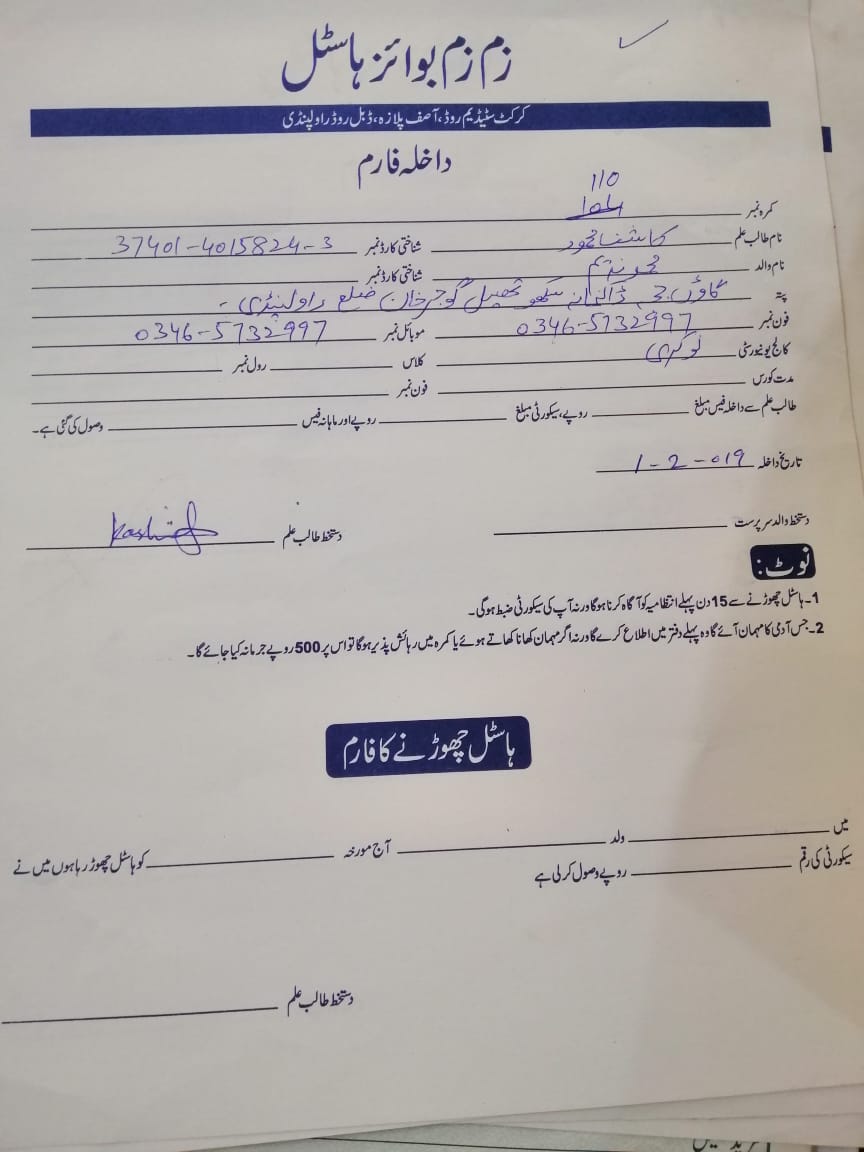 زم زم بوائز ہاسٹل
کرکٹ سٹیڈیم روڈ، آصف پلازہ، ڈبل روڈ راولپنڈی
داخلہ فارم
110
کمرہ نمبر 104
نام طالب علم کاشف محمود شناختی کارڈ نمبر 37401-4015824-3
نام والد محمد ندیم شناختی کارڈ نمبر
پتہ گاؤں ڈاکخانہ سکھو تحصیل گوجرخان ضلع راولپنڈی -
فون نمبر 0346-5732997 موبائل نمبر 0346-5732997
کالج یونیورسٹی نوکری کلاس رول نمبر
مدت کورس فون نمبر
طالب علم سے داخلہ فیس مبلغ روپے، سیکورٹی مبلغ روپے اور ماہانہ فیس وصول کی گئی ہے۔
تاریخ داخلہ 1-2-019
دستخط والد سرپرست دستخط طالب علم Kashif
نوٹ:
1۔ ہاسٹل چھوڑنے سے 15 دن پہلے انتظامیہ کو آگاہ کرنا ہوگا ورنہ آپ کی سیکورٹی ضبط ہوگی۔
2۔ جس آدمی کا مہمان آئے گا وہ پہلے دفتر میں اطلاع کرے گا ورنہ اگر مہمان کھانا کھاتے ہوئے یا کمرہ میں رہائش پذیر ہوگا تو اس پر 500 روپے جرمانہ کیا جائے گا۔
ہاسٹل چھوڑنے کا فارم
میں ولد آج مورخہ کو ہاسٹل چھوڑ رہا ہوں میں نے
سیکورٹی کی رقم روپے وصول کر لی ہے
دستخط طالب علم